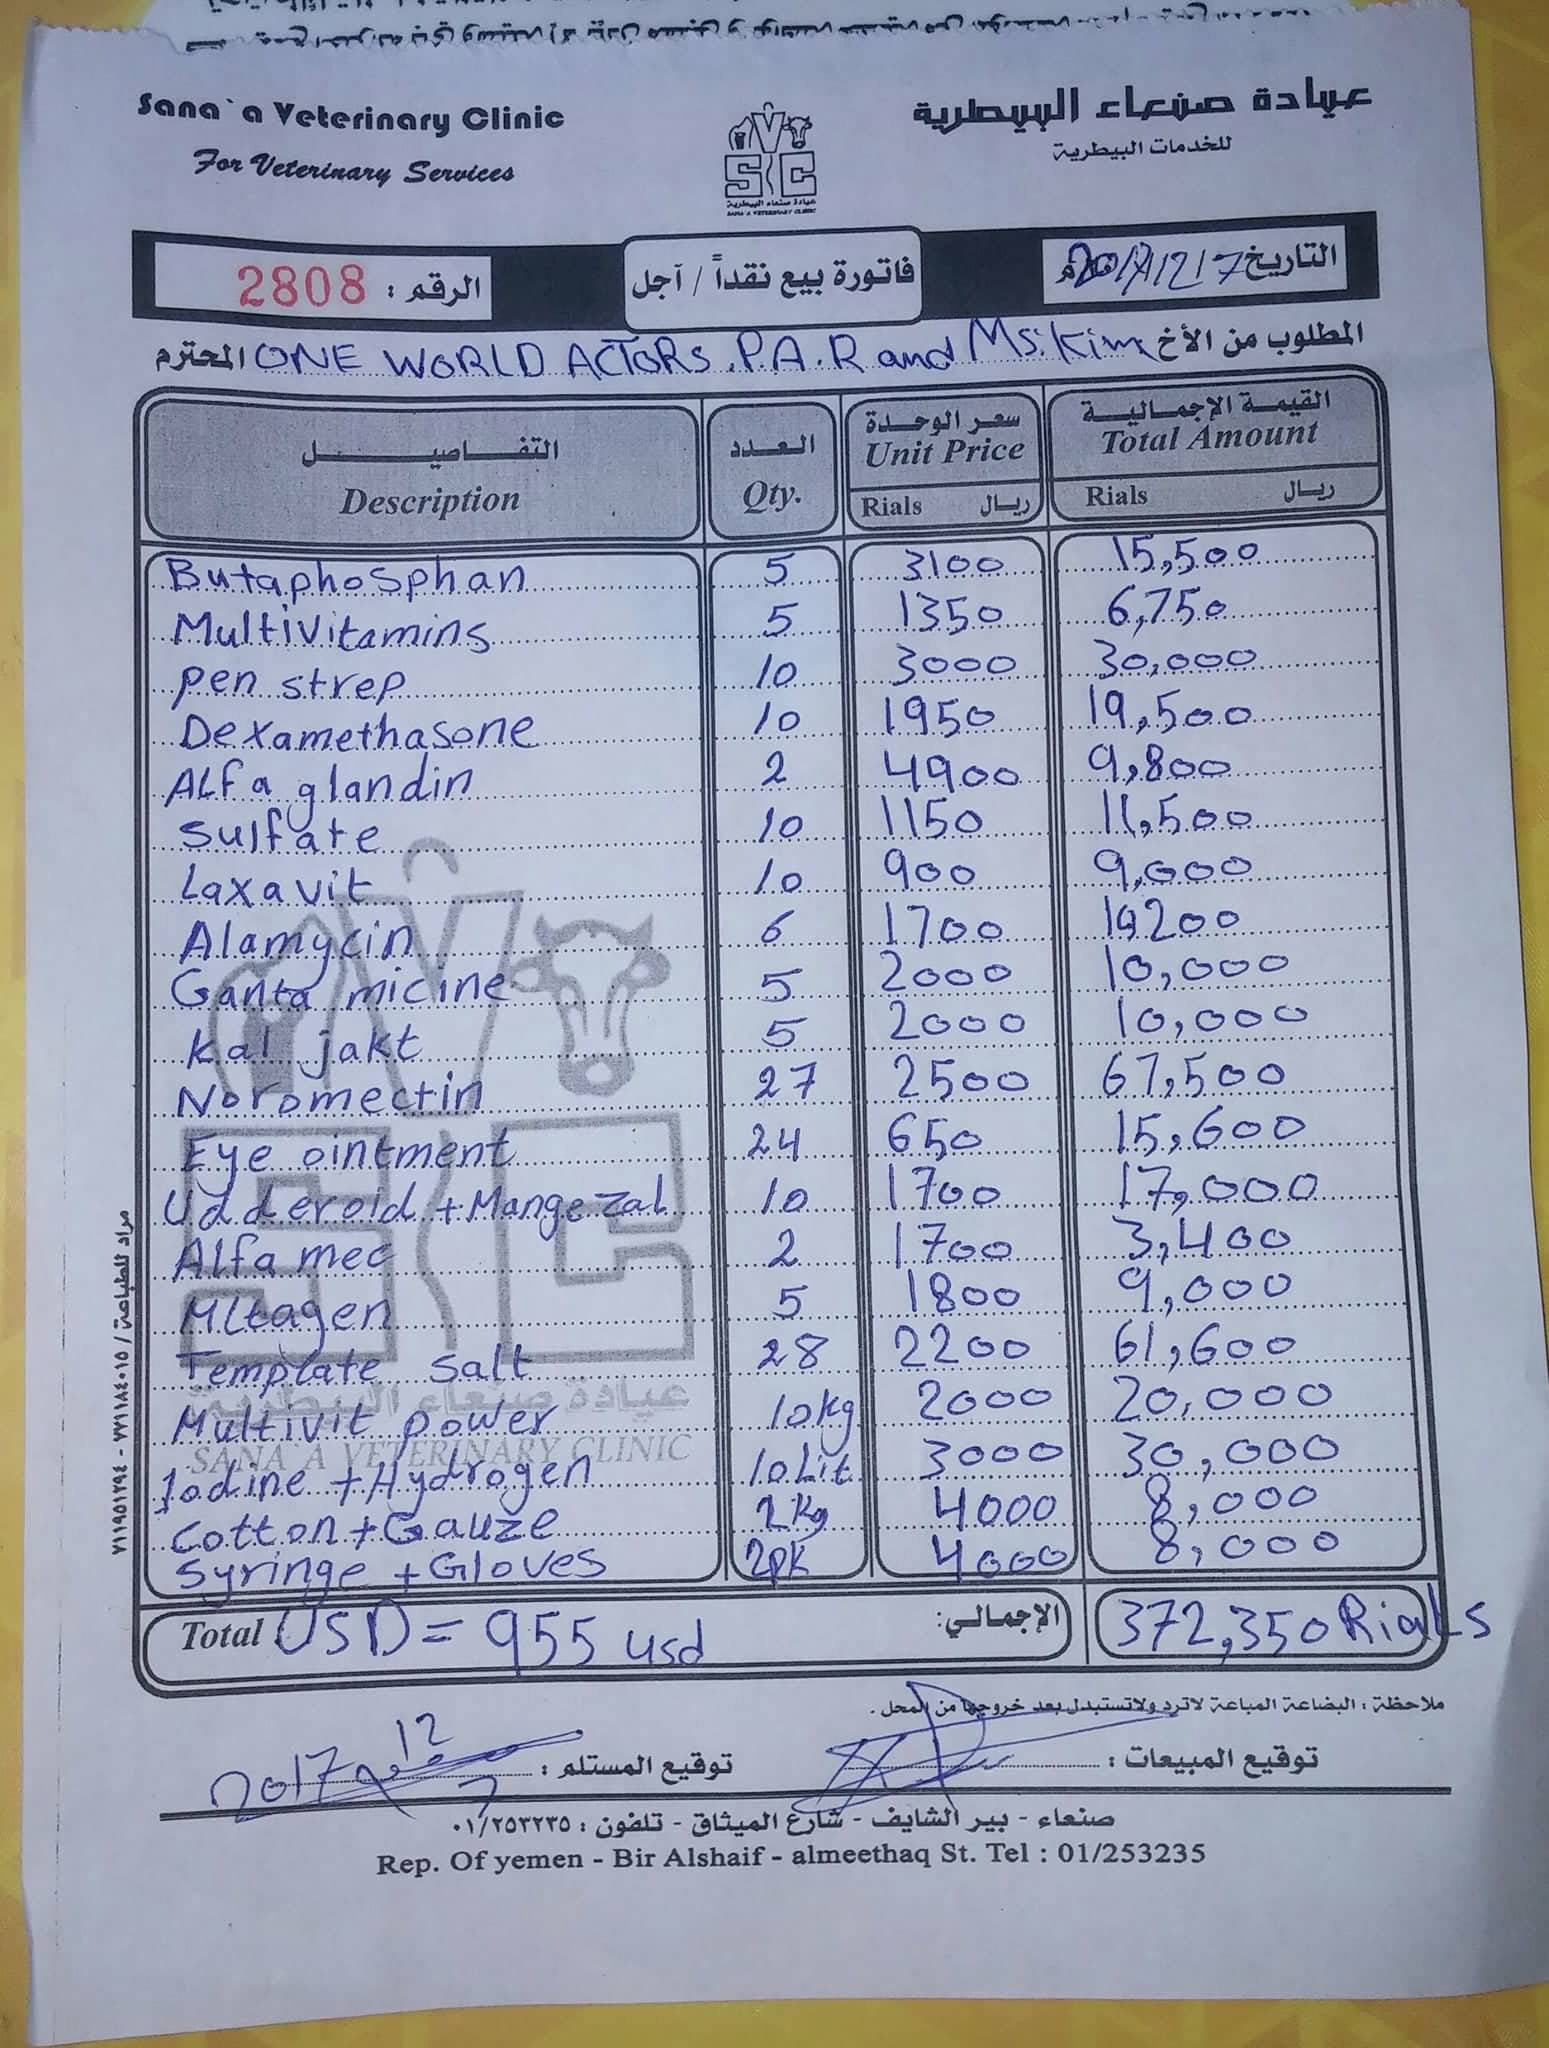 Sana`a Veterinary Clinic
For Veterinary Services
عيادة صنعاء البيطرية
للخدمات البيطرية
VSC
عيادة صنعاء البيطرية
SANA`A VETERINARY CLINIC
الرقم : 2808
فاتورة بيع نقداً / آجل
التاريخ 2017/12/7م
المطلوب من الأخ ONE WORLD ACTORS. P.A.R and Ms. Kim المحترم
التفاصيل Description العدد Qty. سعر الوحدة Unit Price Rials ريال القيمة الإجمالية Total Amount Rials ريال
Butaphosphan 5 3100 15,500
Multivitamins 5 1350 6,750
Pen strep 10 3000 30,000
Dexamethasone 10 1950 19,500
ALfa glandin 2 4900 9,800
Sulfate 10 1150 11,500
Laxavit 10 900 9,000
Alamycin 6 1700 10,200
Ganta micine 5 2000 10,000
Kal jakt 5 2000 10,000
Noromectin 27 2500 67,500
Eye ointment 24 650 15,600
Udderoid + Mangezal 10 1700 17,000
Alfa mec 2 1700 3,400
MLtagen 5 1800 9,000
Template salt 28 2200 61,600
Multivit power 10kg 2000 20,000
Iodine + Hydrogen 10Lit 3000 30,000
Cotton + Gauze 2kg 4000 8,000
Syringe + Gloves 2pk 4000 8,000
عيادة صنعاء البيطرية
SANA`A VETERINARY CLINIC
Total USD = 955 usd الإجمالي: 372,350 Rials
ملاحظة : البضاعة المباعة لاترد ولاتستبدل بعد خروجها من المحل .
توقيع المبيعات :
توقيع المستلم : 2017 12 7
صنعاء - بير الشايف - شارع الميثاق - تلفون : ٠١/٢٥٣٢٣٥
Rep. Of yemen - Bir Alshaif - almeethaq St. Tel : 01/253235
مراد للطباعة / ٧٧١١٨٤٠١٥ - ٧١١٩٥١٢٩٤